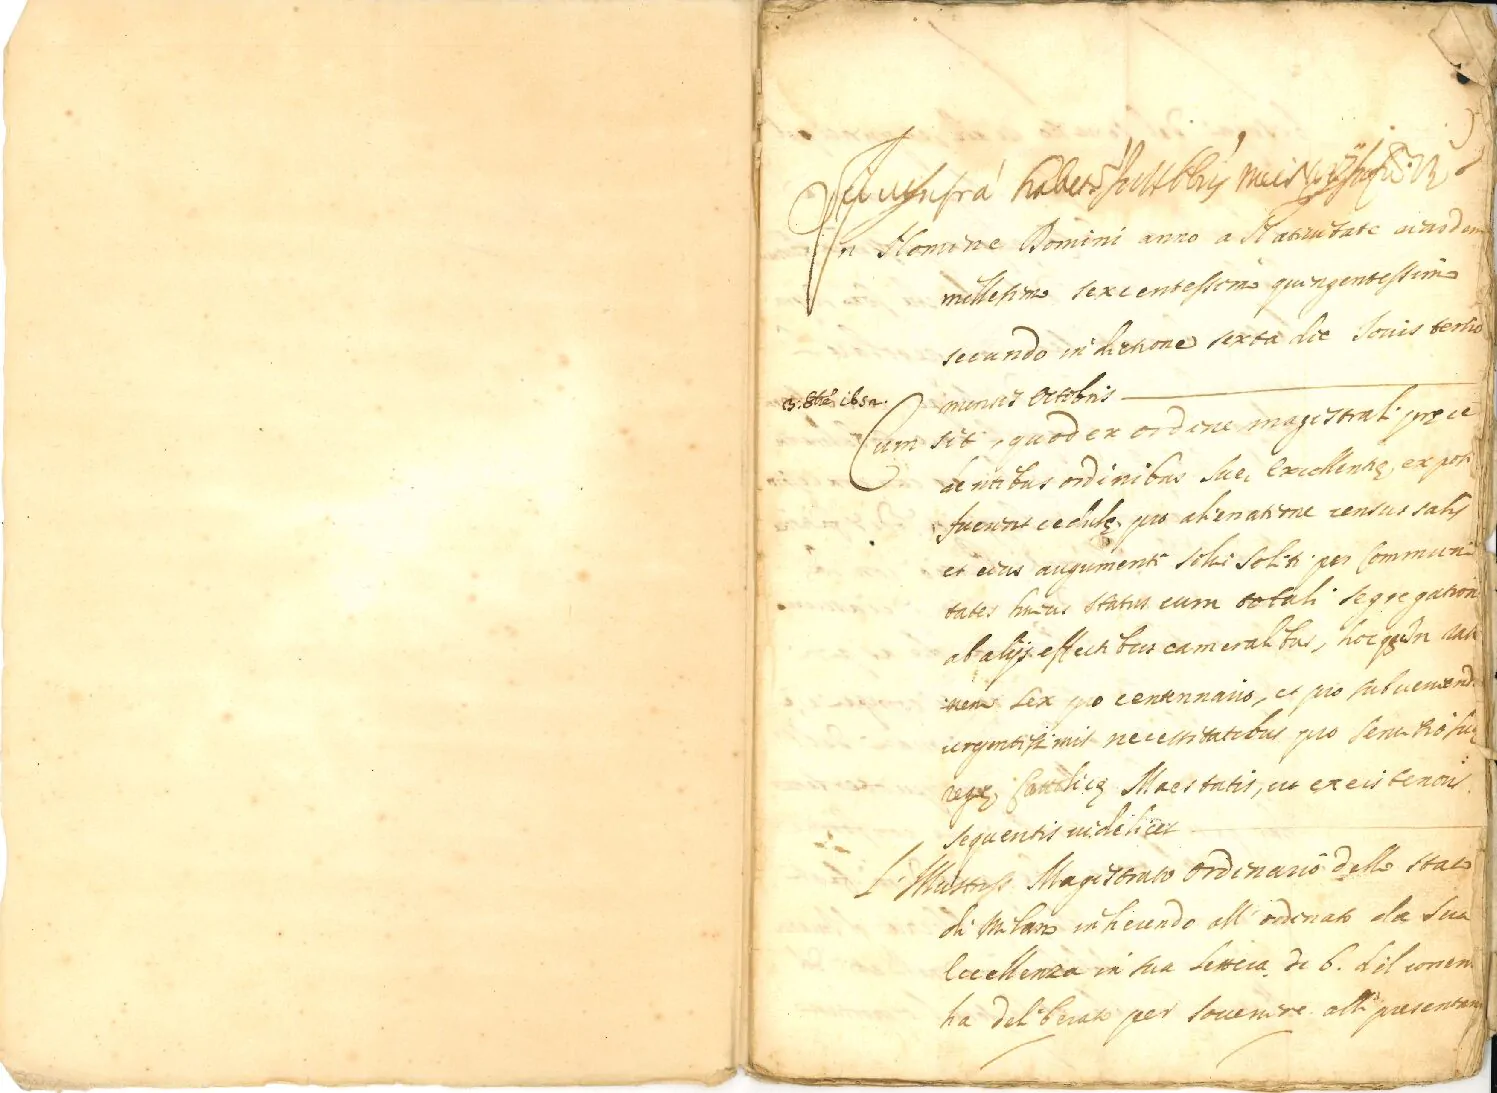 Ut infra habetur
In Nomine Domini anno a Nativitate eiusdem
millesimo sexcentessimo quingentessimo
secundo inditione sexta die Iovis tertio
3. 8bre 1652.
mensis Octobris
Cum sit, quod ex ordine magistrali prece
dentibus ordinibus Suę Excellentię, exposi
fuerint cedulę pro alienatione census salis
et eius augumenti solui soliti per Communi
tates huius status cum totali segregation
ab alijs effectibus cameralibus, hocque in rati
nem sex pro centennario, et pro subveniend
urgentissimis necessitatibus pro servitio suę
regię Cattolicę Maestatis, ut ex eis tenoris
sequentis videlicet
L'Illustriss Magistrato Ordinario dello stato
di Milano inherendo all ordinato da Sua
Eccellenza in sua lettera di 6. del corren
ha deliberato per sovenire alli presentan